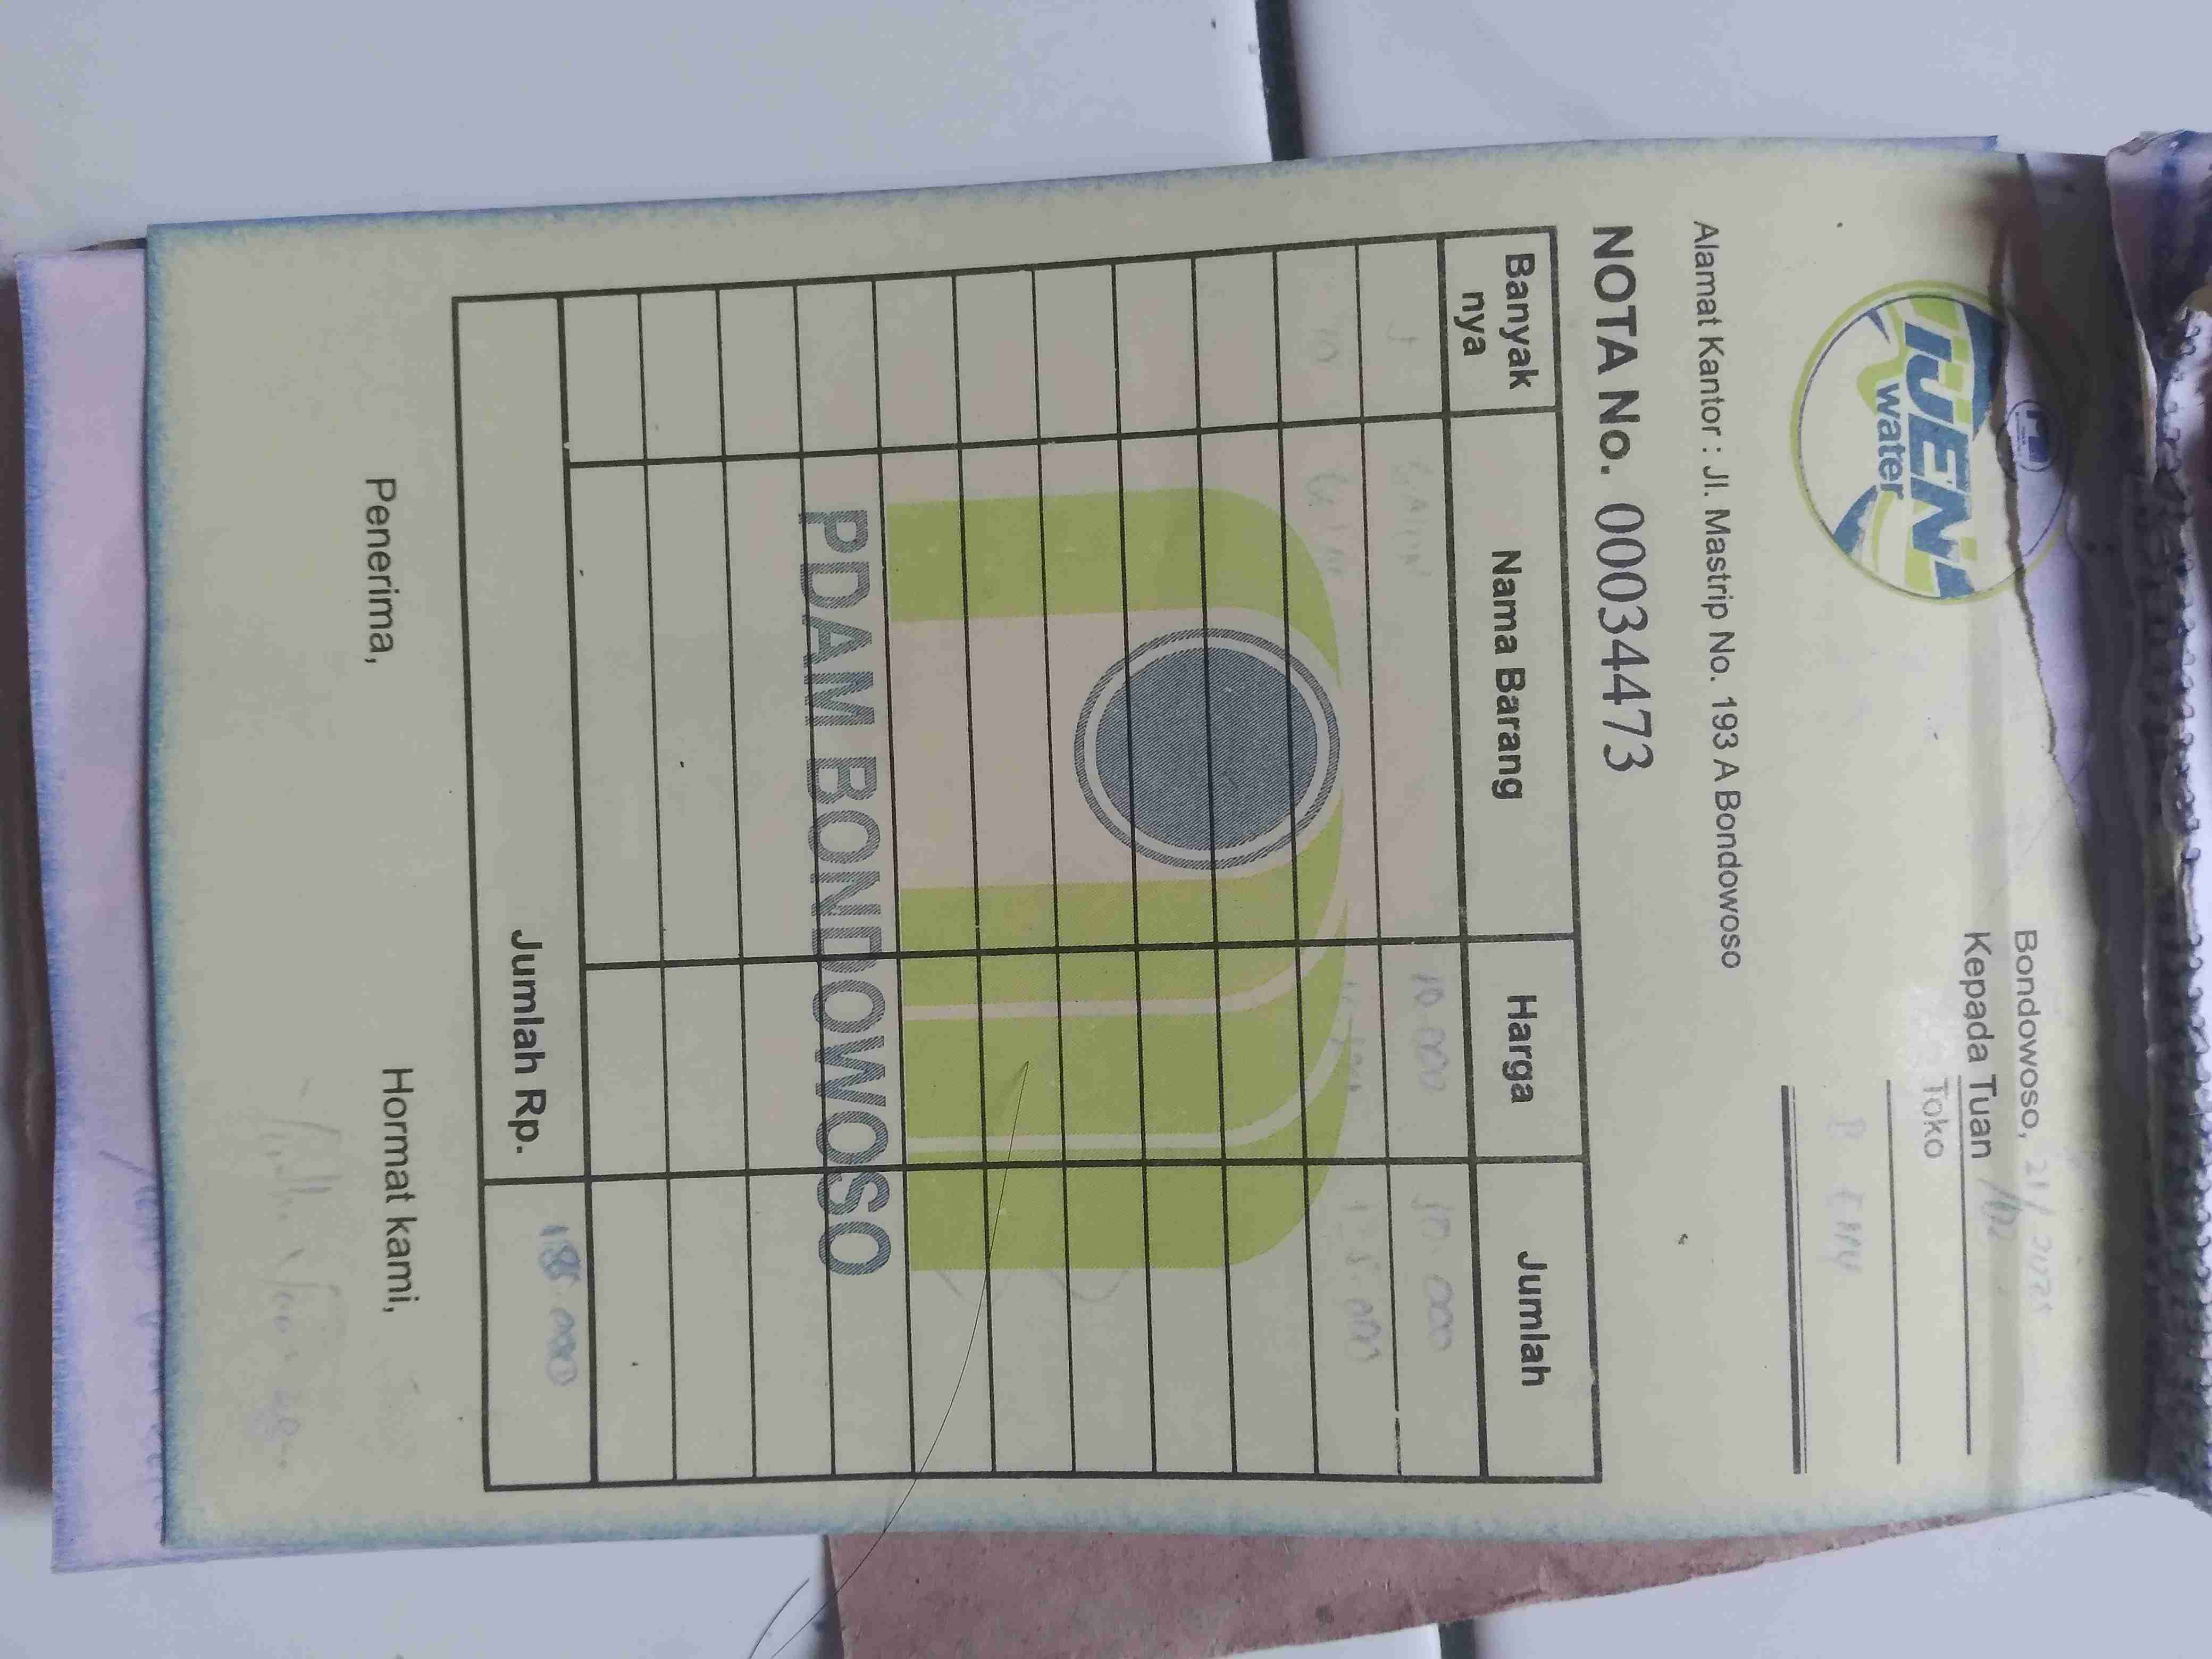 IJEN
water
Bondowoso, 21/ 2025
Kepada Tuan
Toko
Alamat Kantor : Jl. Mastrip No. 193 A Bondowoso
NOTA No. 00034473
Banyak nya Nama Barang Harga Jumlah
10.000 50.000
10
PDAM BONDOWOSO
Jumlah Rp. 185.000
Penerima, Hormat kami,